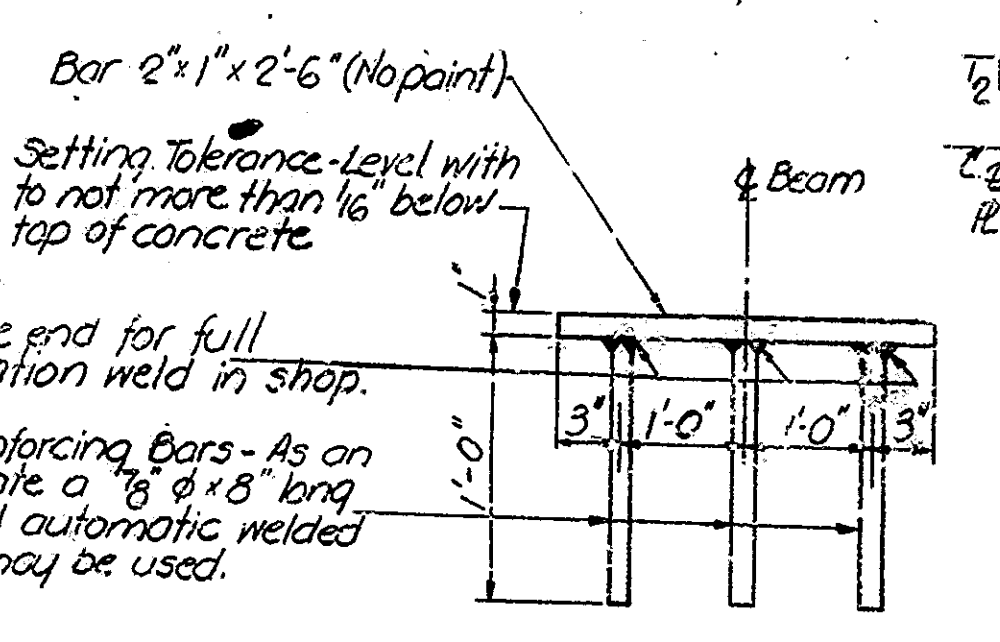 Bar 2"x1"x2'-6" (No paint)
Setting Tolerance-Level with
to not more than 1/16" below
top of concrete
℄ Beam
1"
e end for full
ation weld in shop.
3" 1'-0" 1'-0" 3"
1'-0"
nforcing Bars - As an
ate a 7/8" ϕ x 8" long
automatic welded
may be used.
1/2